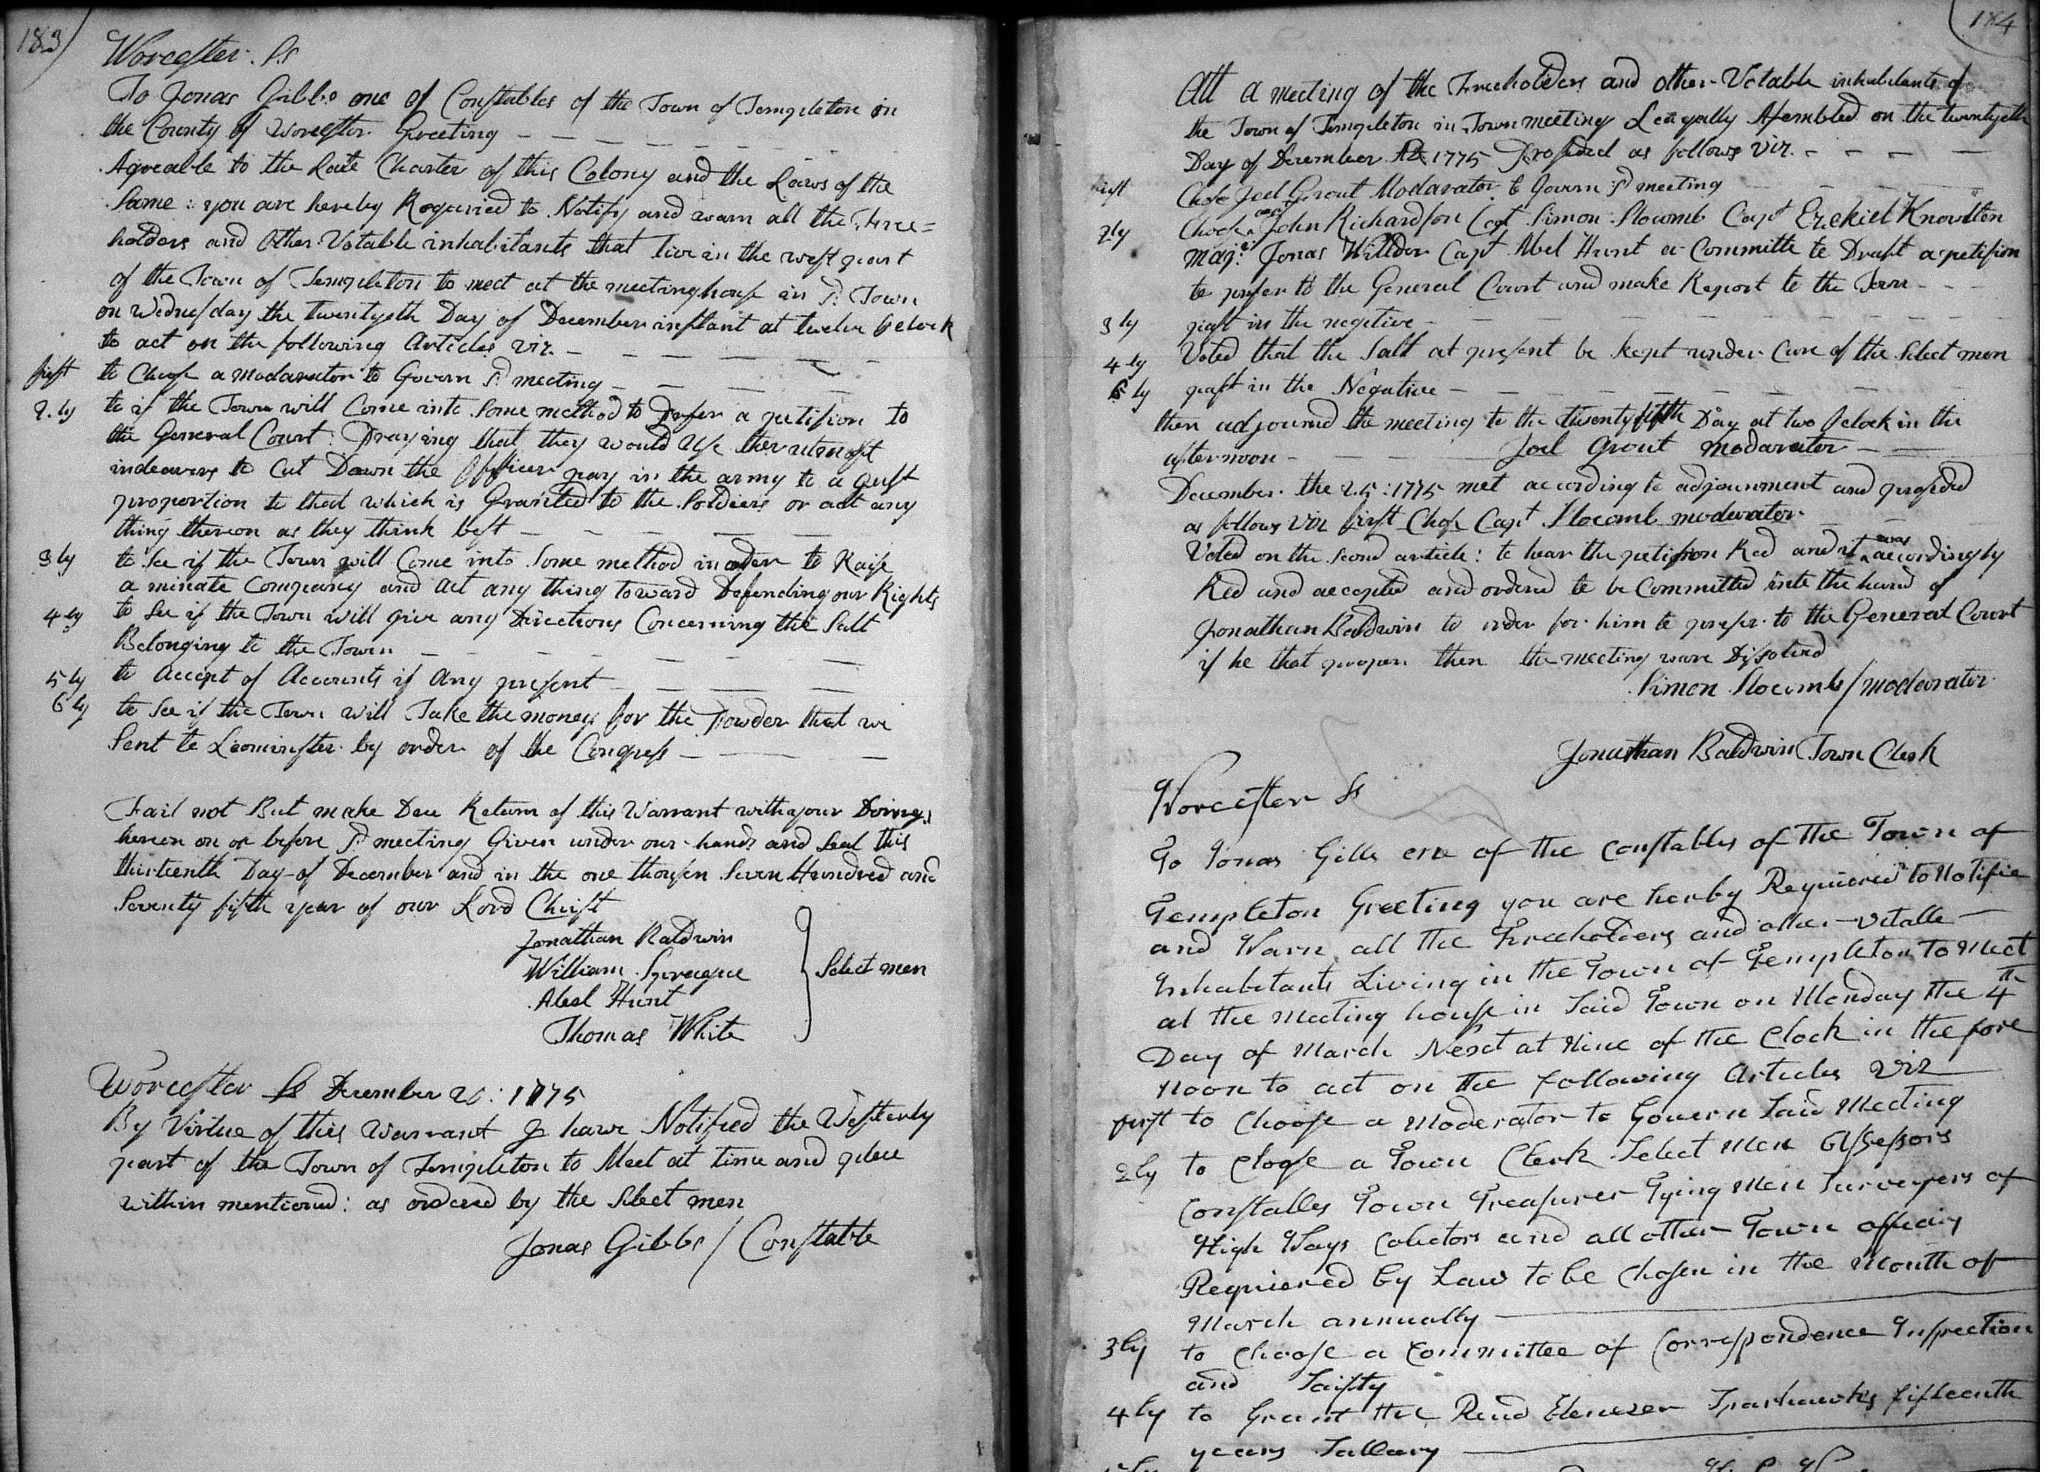 183
Worcester. Ss
To Jonas Gibbs one of Constables of the Town of Templeton in
the County of Worcester Greeting
Agreable to the Late Charter of this Colony and the Laws of the
Same: you are hereby Required to Notify and warn all the Free=
holders and Other Votable inhabitants that live in the west part
of the Town of Templeton to meet at the meetinghouse in Sd. Town
on Wednesday the twentyeth Day of December instant at twelve oClock
to act on the following Articles viz.
first to Chose a modarator to Govern Sd meeting
2.ly to if the Town will Come into Some method to Prefer a petision to
the General Court: Praying that they would Use ther utmost
indeavers to Cut Down the Officers pay in the army to a Just
proportion to that which is Granted to the Soldiers or act any
thing thereon as they think best
3ly to See if the Town will Come into Some method in order to Raise
a minate Company and Act any thing toward Defending our Rights
4ly to See if the Town will give any Directions Concerning the Salt
Belonging to the Town
5ly to Accept of Accounts if Any present
6ly to See if the Town will Take the money for the Powder that we
Sent to Leominster by order of the Congress
Fail not But make Due Return of this Warrant with your Doings
hereon on or before Sd meeting Given under our hands and Seal this
thirteenth Day of December and in the one thousen Seven Hundred and
Seventy fifth year of our Lord Christ
Jonathan Baldwin
William Sprague
Abel Hunt
Thomas White
Select men
Worcester Ss December 20: 1775
By Virtue of this Warrant I have Notified the Westerly
part of the Town of Templeton to Meet at time and place
within mentioned: as ordered by the Select men
Jonas Gibbs / Constable
184
Att a meeting of the Freeholders and other Votable inhabitants of
the Town of Templeton in Town meeting Leagally Asembled on the twentyeth
Day of December AD 1775 Proseded as follows viz.
first Chose Joel Grout Modarator to Govern Sd meeting
2ly Chose John Richardson Capt Simon Slocomb Capt Ezekiel Knowlton
Majr. Jonas Willder Capt Abel Hunt a Committe to Draft a petision
to prefer to the General Court and make Report to the Town
3ly past in the negetive
4ly Voted that the Salt at present be kept under Care of the Select men
6ly past in the Negative
then adjourned the meeting to the twenty fifth Day at two oclock in the
afternoon Joel Grout modarator
December the 25: 1775 met according to adjournment and proseded
as follows viz first Chose Capt Slocomb moderator
Voted on the second article: to hear the petision Red and it was accordingly
Red and accepted and ordered to be Committed into the hand of
Jonathan Baldwin to order for him to prefer to the General Court
if he that proper then the meeting ware Disolved
Simon Slocomb / modarator
Jonathan Baldwin Town Clerk
Worcester Ss
To Jonas Gibbs one of the constables of the Town of
Templeton Greeting you are herby Requiered to Notifie
and Warn all the Freeholders and other votable
Inhabitants Living in the Town of Templeton To Meet
at the meeting house in Said Town on Monday the 4th
Day of March Next at Nine of the Clock in the fore
Noon to act on the following Articles viz
first to Choose a Moderator to Govern Said Meeting
2ly to Choose a Town Clerk Select Men Assessors
Constables Town Treasurer Tying Men Surveyers of
High Ways Colectors and all other Town officirs
Requiered by Law to be Chosen in the Month of
March annually
3ly to Choose a Committee of Correspondence Inspection
and Saifty
4ly to Grant the Revd Ebenezer Sparhawks fifteenth
years Sallary